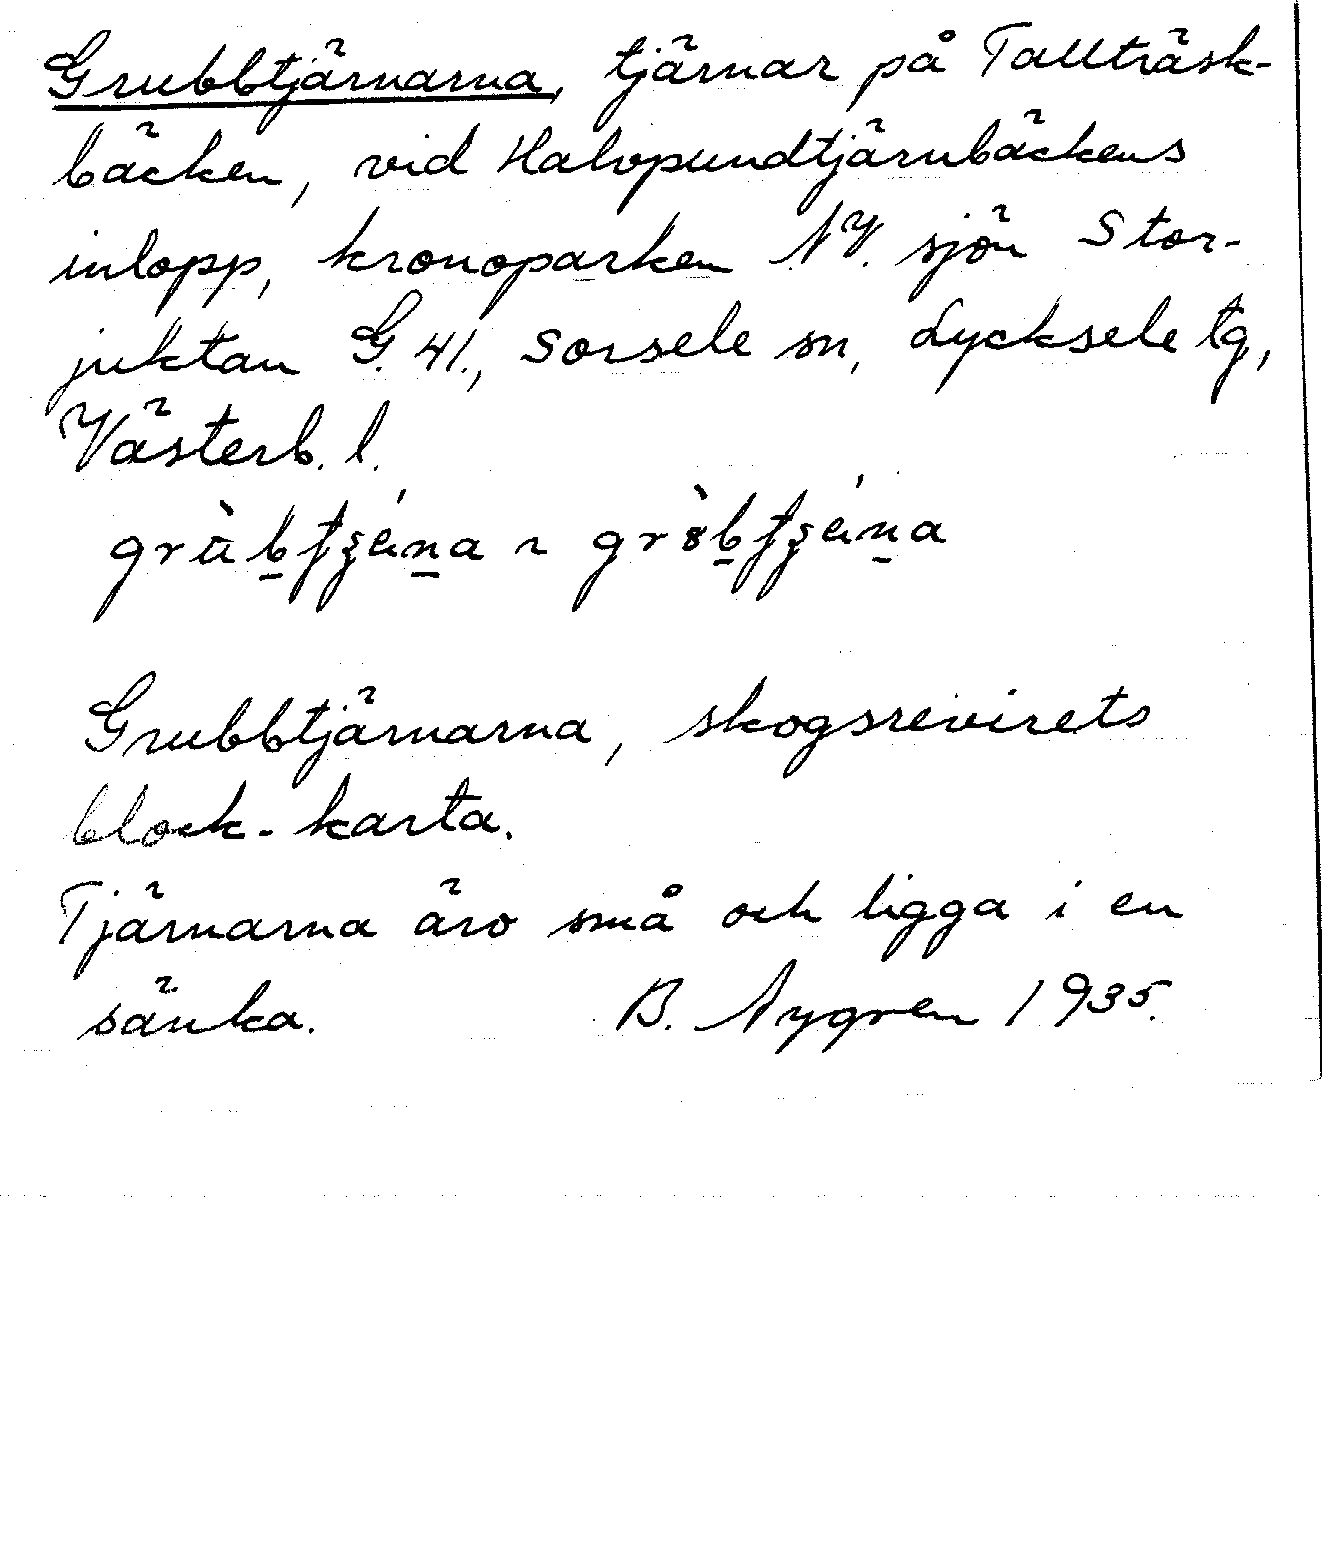 Grubbtjärnarna, tjärnar på Tallträsk-
bäcken, vid Halvpundtjärnbäckens
inlopp, kronoparken NV. sjön Stor-
juktan G. 41., Sorsele sn, Lycksele tg,
Västerb. l.
Grubbtjärnarna, skogsrevirets
block-karta.
Tjärnarna äro små och ligga i en
sänka. B. Nygren 1935.